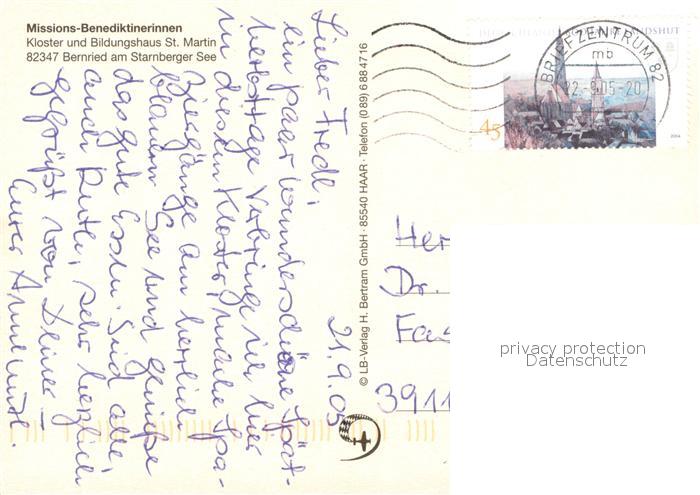 Missions-Benediktinerinnen
Kloster und Bildungshaus St. Martin
82347 Bernried am Starnberger See
21.9.05
Lieber Fredl,
ein paar wunderschöne Spät-
herbsttage verbringe ich hier
in diesem Kloster, mache Spa-
ziergänge am herrlich
blauen See und genieße
das gute Essen. Seid alle,
auch Ruth, sehr herzlich
gegrüßt von Deiner –
Eurer Annemute.
© LB-Verlag H. Bertram GmbH · 85540 HAAR · Telefon (089) 6 88 47 16
BRIEFZENTRUM 82
mb
22.-9.05-20
LANDSHUT
45
2004
Her
Dr.
Fas
3911
privacy protection
Datenschutz